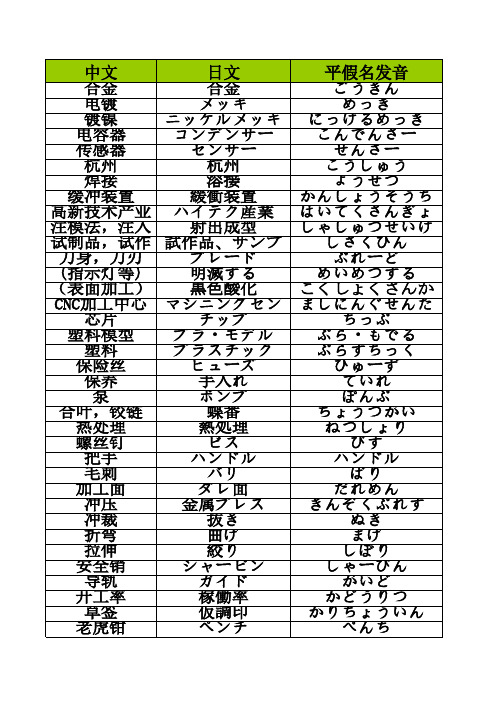 中文 日文 平假名发音
合金 合金 ごうきん
电镀 メッキ めっき
镀镍 ニッケルメッキ にっけるめっき
电容器 コンデンサー こんでんさー
传感器 センサー せんさー
杭州 杭州 こうしゅう
焊接 溶接 ようせつ
缓冲装置 緩衝装置 かんしょうそうち
高新技术产业 ハイテク産業 はいてくさんぎょ
注模法，注入 射出成型 しゃしゅつせいけ
试制品，试作 試作品、サンプ しさくひん
刀身，刀刃 ブレード ぶれーど
(指示灯等) 明滅する めいめつする
(表面加工) 黒色酸化 こくしょくさんか
CNC加工中心 マシニングセン ましにんぐせんた
芯片 チップ ちっぷ
塑料模型 プラ・モデル ぷら・もでる
塑料 プラスチック ぷらすちっく
保险丝 ヒューズ ひゅーず
保养 手入れ ていれ
泵 ポンプ ぽんぷ
合叶，铰链 蝶番 ちょうつがい
热处理 熱処理 ねつしょり
螺丝钉 ビス びす
把手 ハンドル ハンドル
毛刺 バリ ばり
加工面 ダレ面 だれめん
冲压 金属プレス きんぞくぷれす
冲裁 抜き ぬき
折弯 曲げ まげ
拉伸 絞り しぼり
安全销 シャーピン しゃーぴん
导轨 ガイド がいど
开工率 稼働率 かどうりつ
草签 仮調印 かりちょういん
老虎钳 ペンチ ぺんち